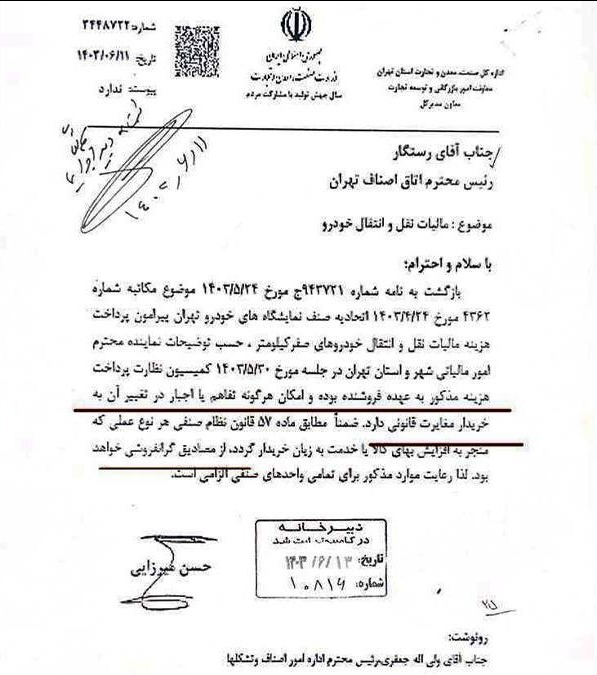 شماره: ۳۴۴۸۷۲۲
تاریخ: ۱۴۰۳/۰۶/۱۱
پیوست: ندارد
جمهوری اسلامی ایران
وزارت صنعت، معدن و تجارت
سال جهش تولید با مشارکت مردم
اداره کل صنعت، معدن و تجارت استان تهران
معاونت امور بازرگانی و توسعه تجارت
معاون مدیرکل
جناب آقای رستگار
رئیس محترم اتاق اصناف تهران
موضوع : مالیات نقل و انتقال خودرو
با سلام و احترام؛
بازگشت به نامه شماره ۹۴۳۷۲۱ج مورخ ۱۴۰۳/۵/۲۴ موضوع مکاتبه شماره
۴۳۶۲ مورخ ۱۴۰۳/۴/۲۴ اتحادیه صنف نمایشگاه های خودرو تهران پیرامون پرداخت
هزینه مالیات نقل و انتقال خودروهای صفرکیلومتر ، حسب توضیحات نماینده محترم
امور مالیاتی شهر و استان تهران در جلسه مورخ ۱۴۰۳/۵/۳۰ کمیسیون نظارت پرداخت
هزینه مذکور به عهده فروشنده بوده و امکان هرگونه تفاهم یا اجبار در تغییر آن به
خریدار مغایرت قانونی دارد. ضمناً مطابق ماده ۵۷ قانون نظام صنفی هر نوع عملی که
منجر به افزایش بهای کالا یا خدمت به زیان خریدار گردد، از مصادیق گرانفروشی خواهد
بود. لذا رعایت موارد مذکور برای تمامی واحدهای صنفی الزامی است.
حسن میرزایی
دبیرخانه
تاریخ: ۱۴۰۳/۶/۱۳
شماره: ۱۰۸۱۴
رونوشت:
جناب آقای ولی اله جعفری،رئیس محترم اداره امور اصناف وتشکلها